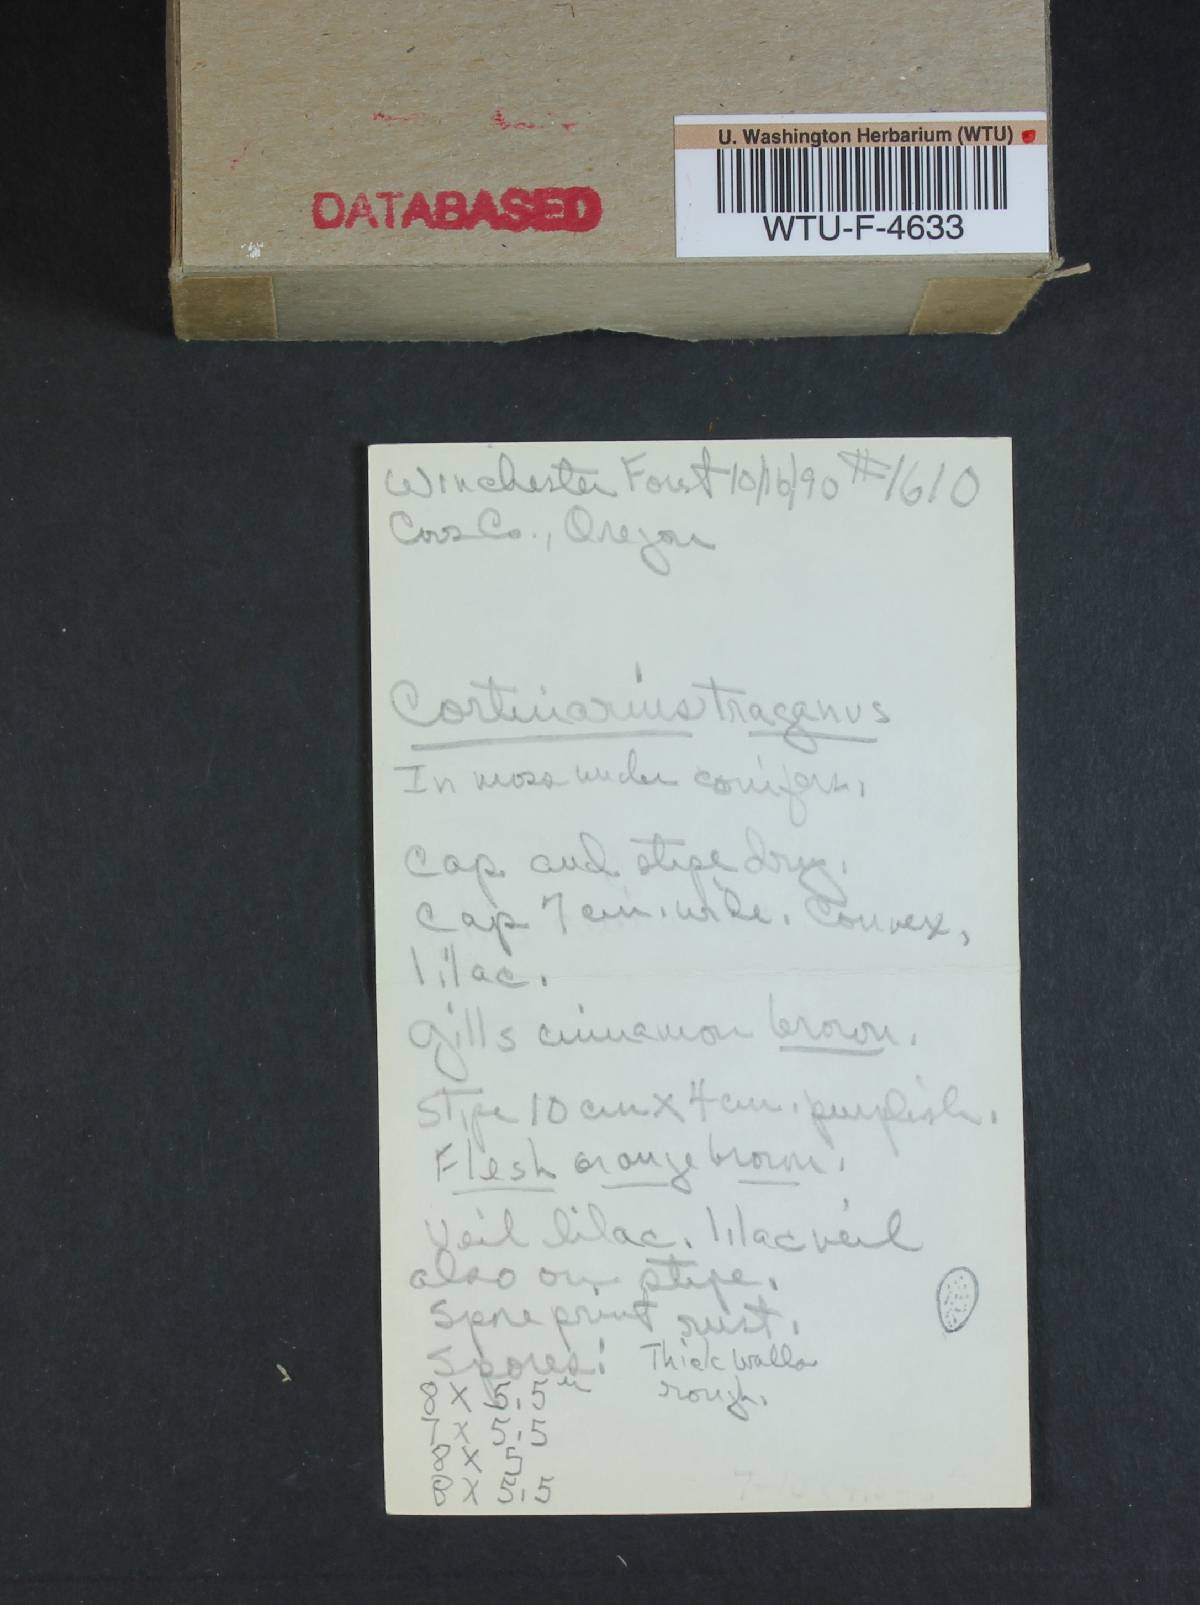 DATABASED
U. Washington Herbarium (WTU)
WTU-F-4633
Winchester Forest 10/16/90 #1610
Coos Co., Oregon
Cortinarius traganus
In moss under conifers.
Cap and stipe dry.
Cap 7 cm. wide. Convex,
lilac.
Gills cinnamon brown.
Stipe 10 cm X 4 cm. purplish.
Flesh orange brown.
Veil lilac. lilac veil
also on stipe.
Spore print rust.
Spores: Thick walls
8 X 5.5 u rough.
7 X 5.5
8 X 5
8 X 5.5